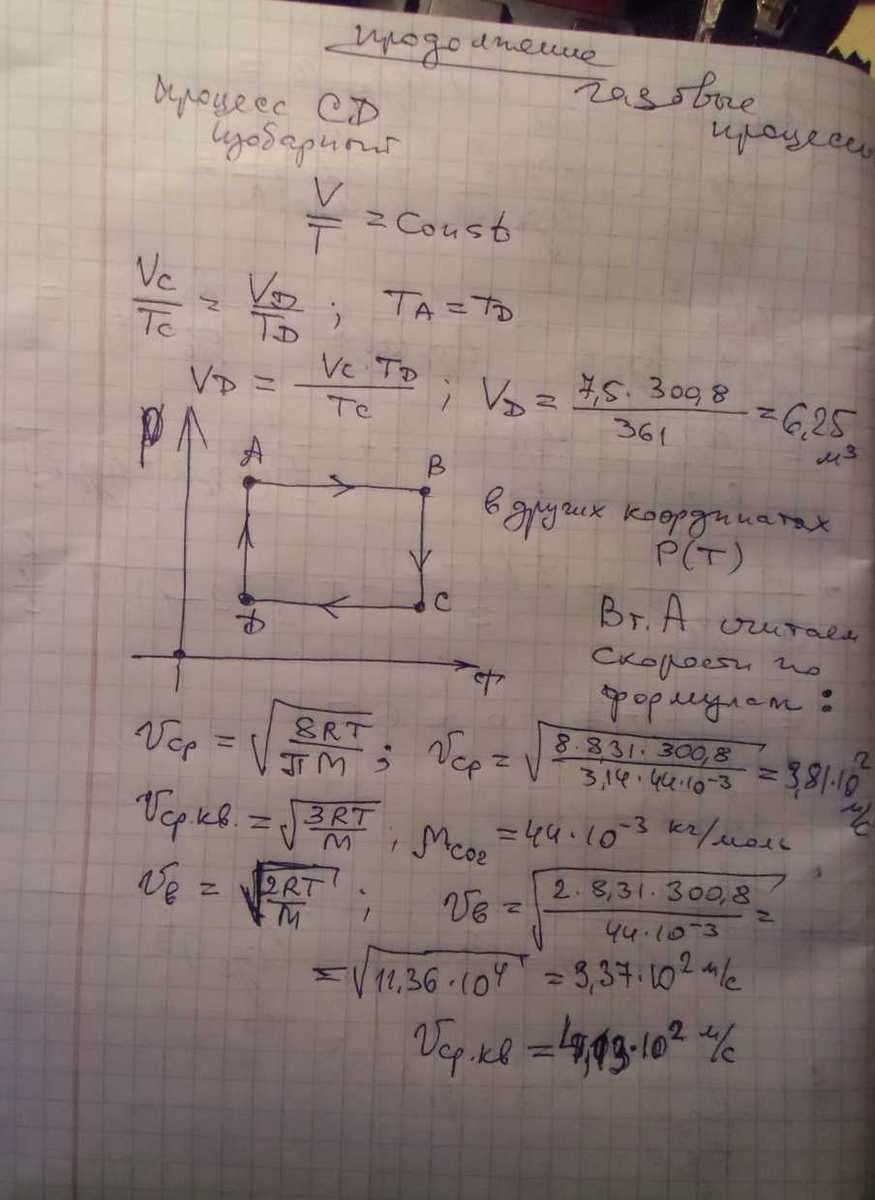 продолжение
газовые
процессы
процесс CD
изобарный
V/T = Const
Vc/Tc = VD/TD ; TA = TD
VD = Vc · TD / Tc ; VD = 7,5 · 300,8 / 361 = 6,25 м³
P
A
B
C
D
T
в других координатах
P(T)
В т. A считаем
скорости по
формулам :
Vср = √(8RT/πM) ; Vср = √(8 · 8,31 · 300,8 / 3,14 · 44·10⁻³) = 3,81·10² м/с
Vср.кв. = √(3RT/M) , Mco₂ = 44·10⁻³ кг/моль
Vв = √(2RT/M) ; Vв = √(2 · 8,31 · 300,8 / 44·10⁻³) =
= √(11,36·10⁴) = 3,37·10² м/с
Vср.кв = 4,13·10² м/с